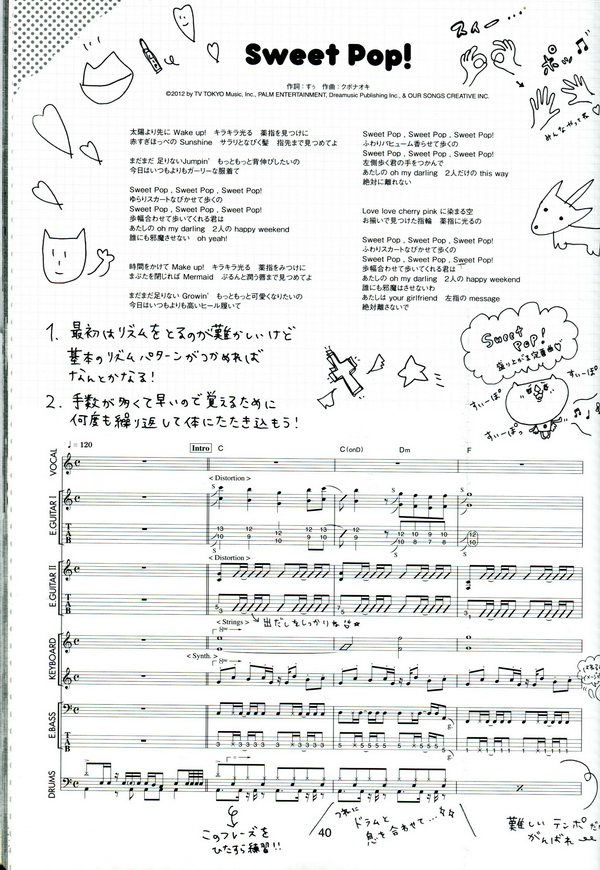 スィー…
みんなでっ
Sweet Pop!
作詞：すぅ　作曲：クボナオキ
©2012 by TV TOKYO Music, Inc., PALM ENTERTAINMENT, Dreamusic Publishing Inc., & OUR SONGS CREATIVE INC.
太陽より先に Wake up!　キラキラ光る　薬指を見つけに
赤すぎほっぺの Sunshine　サラリとなびく髪　指先まで見つめてよ
まだまだ 足りないJumpin'　もっともっと背伸びしたいの
今日はいつもよりもガーリーな服着て
Sweet Pop , Sweet Pop , Sweet Pop!
ゆらりスカートなびかせて歩くの
Sweet Pop , Sweet Pop , Sweet Pop!
歩幅合わせて歩いてくれる君は
あたしの oh my darling　2人の happy weekend
誰にも邪魔させない　oh yeah!
時間をかけて Make up!　キラキラ光る　薬指をみつけに
まぶたを閉じれば Mermaid　ぷるんと潤う唇まで見つめてよ
まだまだ足りない Growin'　もっともっと可愛くなりたいの
今日はいつもよりも高いヒール履いて
Sweet Pop , Sweet Pop , Sweet Pop!
ふわりパヒューム香らせて歩くの
Sweet Pop , Sweet Pop , Sweet Pop!
左側歩く君の手をつかんで
あたしの oh my darling　2人だけの this way
絶対に離れない
Love love cherry pink に染まる空
お揃いで見つけた指輪　薬指に光るの
Sweet Pop , Sweet Pop , Sweet Pop!
ふわりスカートなびかせて歩くの
Sweet Pop , Sweet Pop , Sweet Pop!
歩幅合わせて歩いてくれる君は
あたしの oh my darling　2人の happy weekend
誰にも邪魔はさせないわ
あたしは your girlfriend　左指の message
絶対離さないで
1. 最初はリズムをとるのが難かしいけど
基本のリズムパターンがつかめれば
なんとかなる！
2. 手数が多くて早いので覚えるために
何度も繰り返して体にたたき込もう！
Sweet
Pop!
盛り上がる定番曲
すぃーぽっ
すぃーぽっ
♩= 120
Intro
C
C(onD)
Dm
F
VOCAL
< Distortion >
E.GUITAR I
< Distortion >
E.GUITAR II
< Strings >
出だしをしっかりね
8va
< Synth. >
8va
KEYBOARD
E.BASS
DRUMS
このフレーズを
ひたすら練習!!
40
ドラムと
息を合わせて…
難しいテンポだ
がんばれ